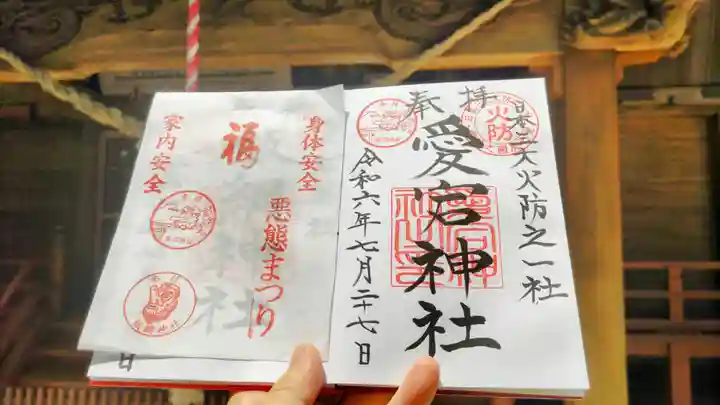 奉拝
日本三大火防之一社
火防
愛宕神社
令和六年七月二十七日
身体安全
悪態まつり
福
家内安全
日